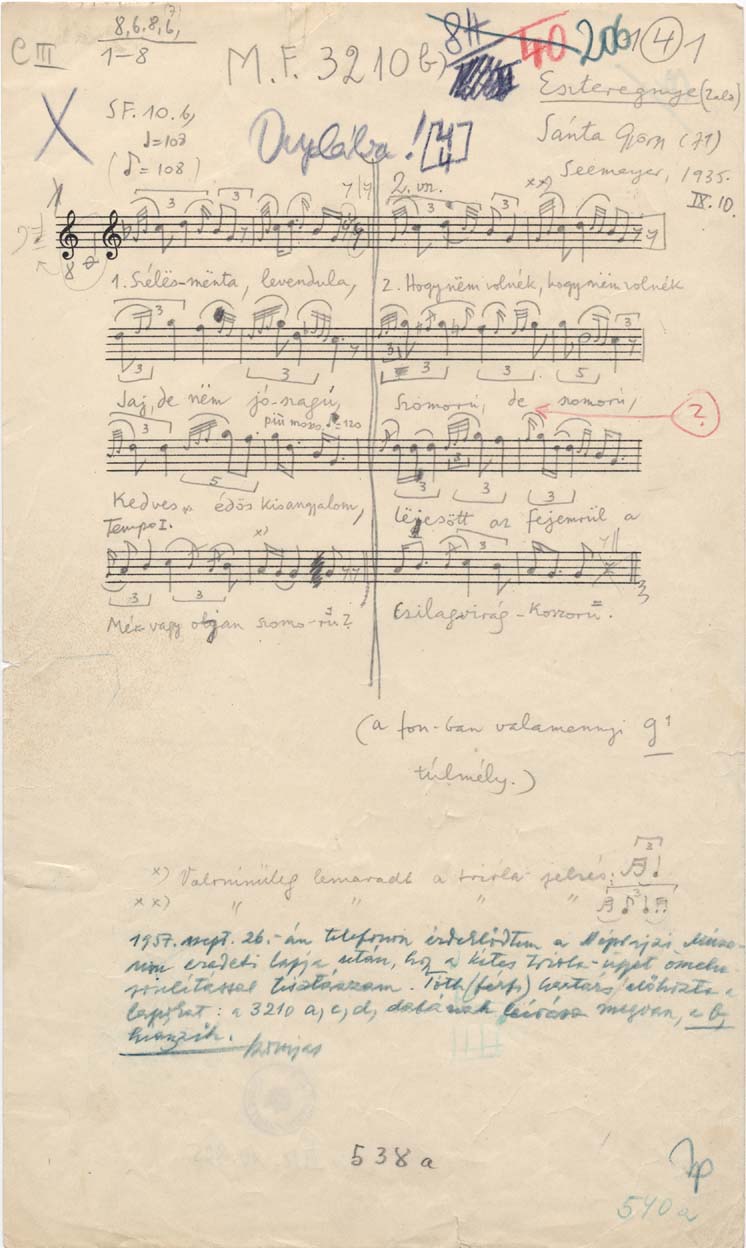 C III
8, 6. 8, 6,
(7)
1-8
M.F. 3210 b)
84
40 206
1 (4) 1
Eszteregnye (Zala)
SF. 10. 6,
♩=108
(♪=108)
[4/4]
Sánta György (71)
Seemayer, 1935.
IX. 10.
2. vn.
xx)
1. Szélës-mënta, levendula,
2. Hogy nëm volnék, hogy nëm volnék
Jaj, de nëm jó szagú,
Szomorú, de szomorú,
?
più mosso ♩=120
Kedves édös kisangyalom,
Lëjesött az fejemrül a
Tempo I.
x)
Mér vagy oljan szomo-rú?
Csilagvirág-koszorú.
(a fon-ban valamennyi g¹
túlmély.)
x) Valószinüleg lemaradt a trióla jelzés:
xx) " " " "
1957. szept. 26.-án telefonon érdeklődtem a Néprajzi Múze-
um eredeti lapja után, hogy a kétes trióla-ügyet összeha-
sonlitással tisztázzam. Tóth (férfi) kartárs előhozta a
lapokat: a 3210 a, c, d, lejírása megvan, a b,
hiányzik.
538a
540a